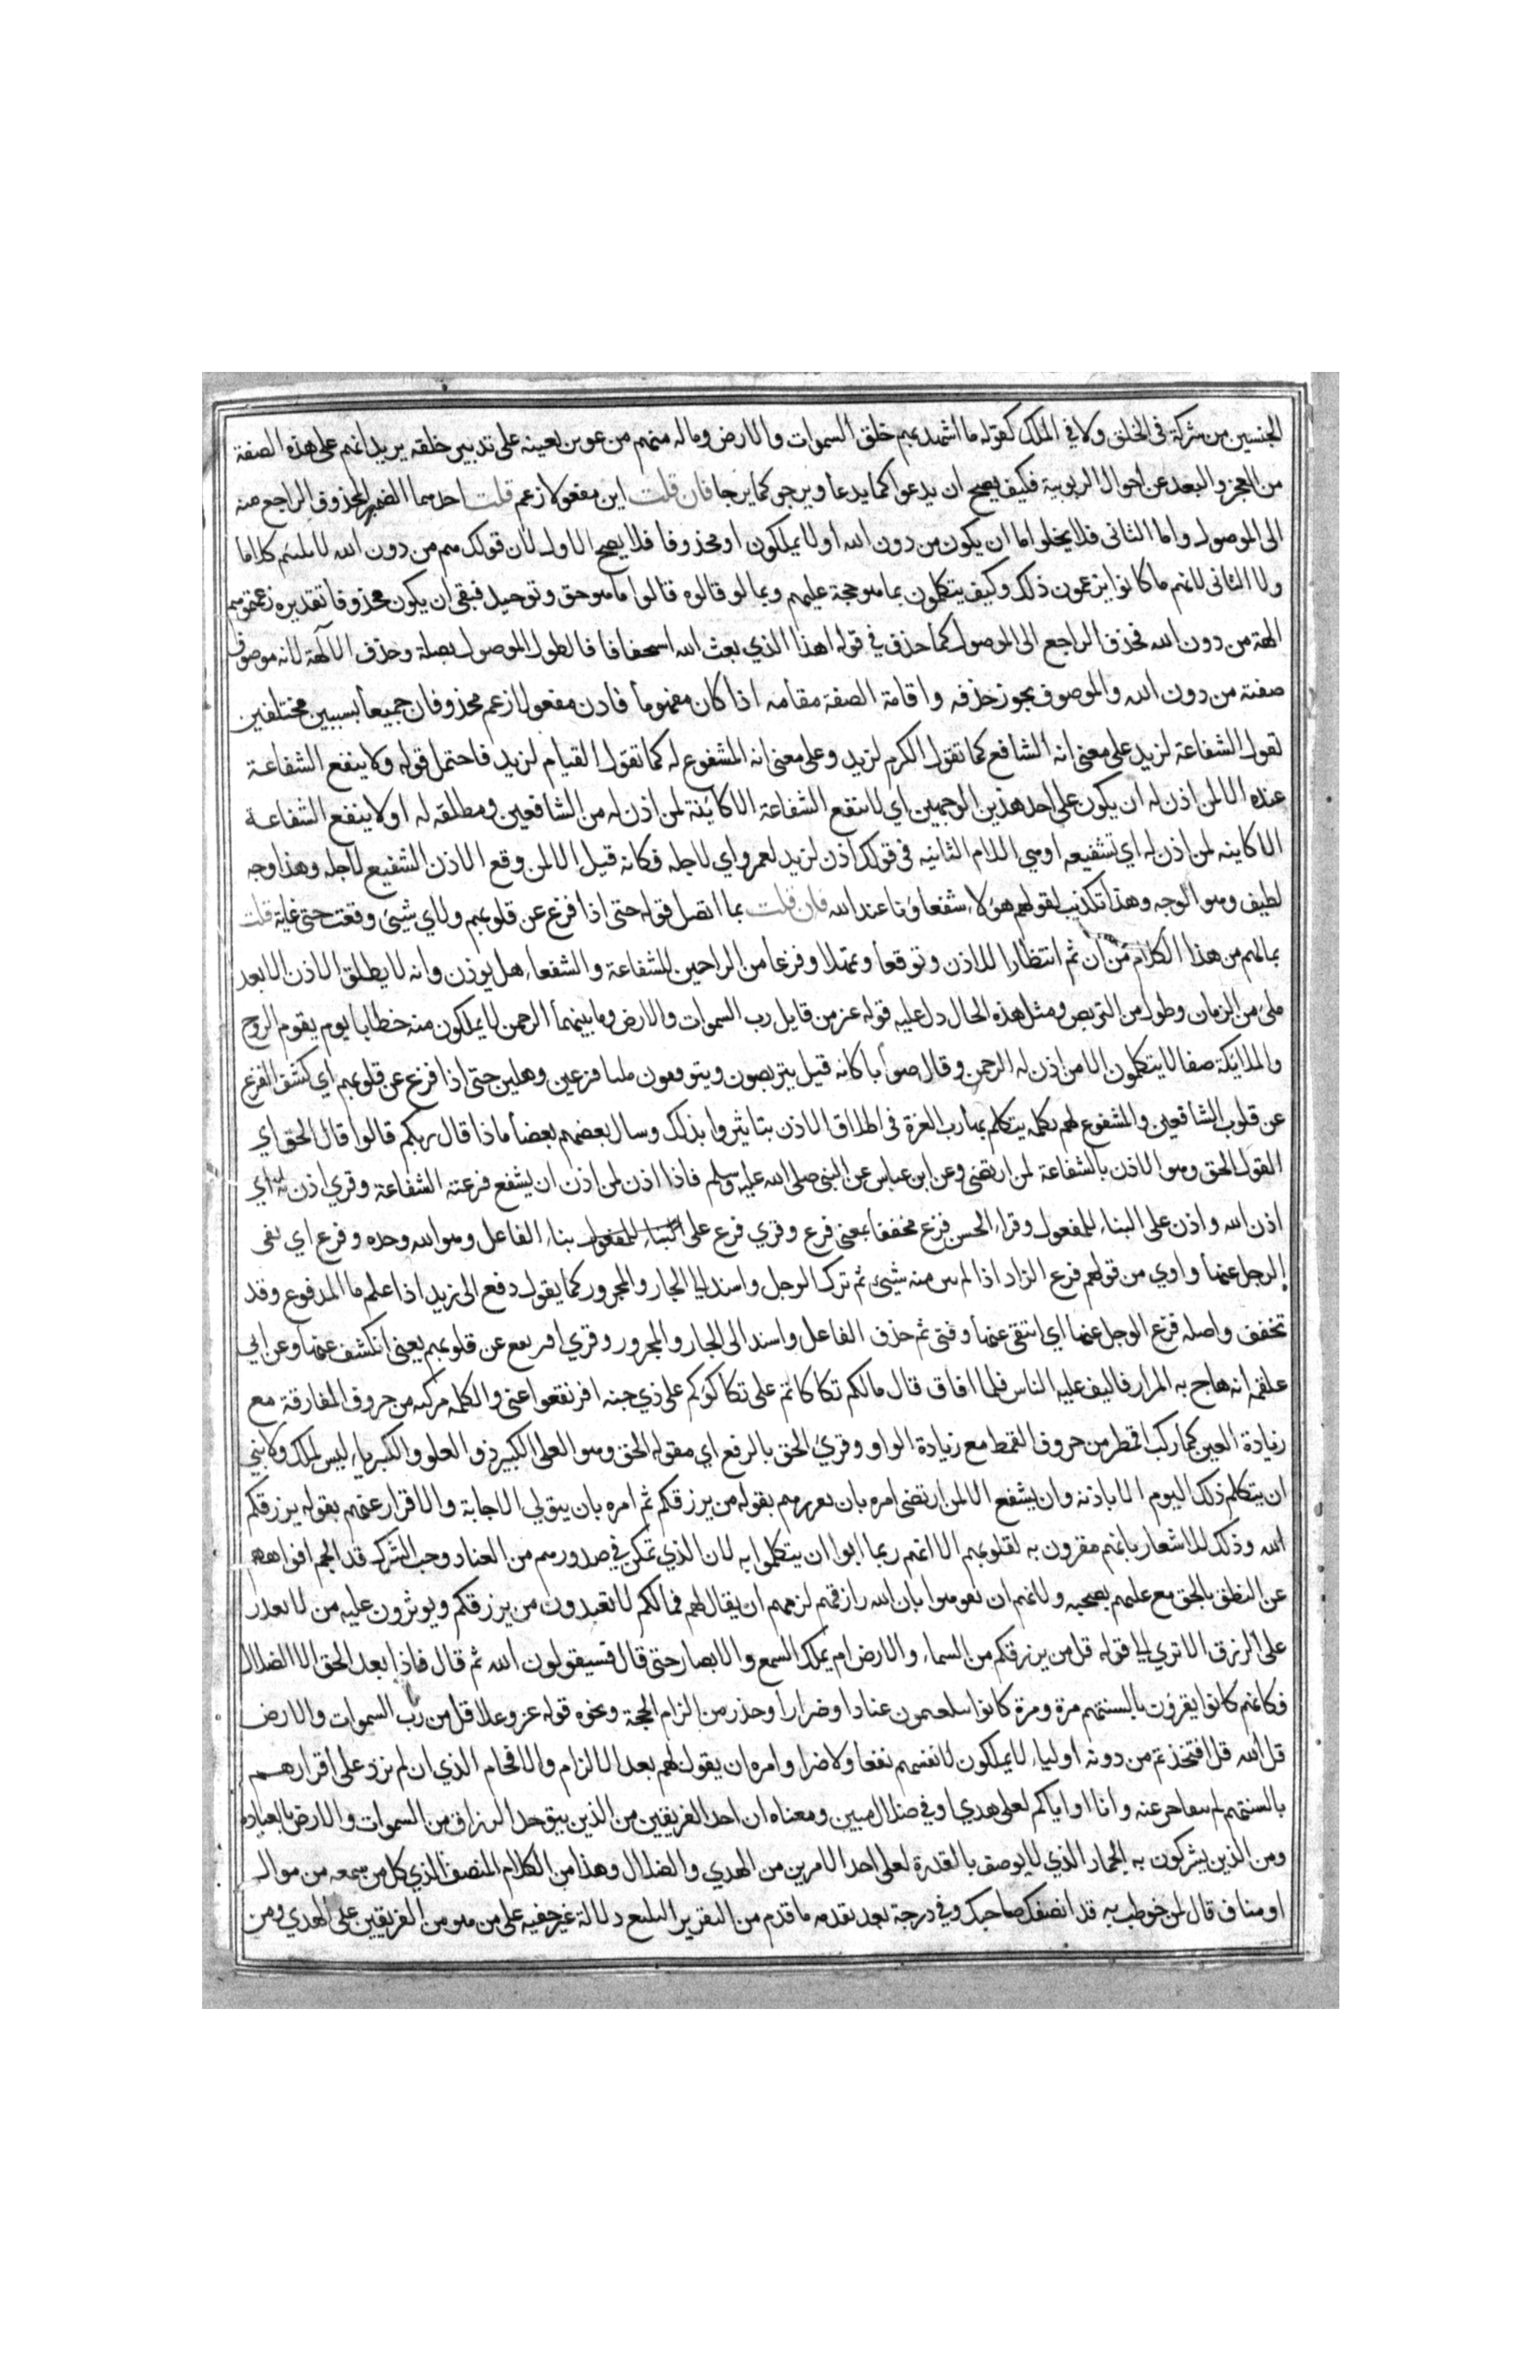 الجنسين من شركة في الخلق ولا في الملك كقوله ما اشهدتهم خلق السموات والارض وماله منهم من عوين يعينه على تدبير خلقه يريد انهم على هذه الصفة
من العجز والبعد عن احوال الربوبية فكيف يصح ان يدعوا كما يدعا ويرجى كما يرجا فان قلت اين مفعولا زعم قلت احدهما الضمير المحذوف الراجع منه
الى الموصول واما الثاني فلا يخلوا اما ان يكون من دون الله او لا يملكون او محذوفا فلا يصح الاول لان قولك هم من دون الله لا يلتئم كلاما
ولا الثاني لانهم ما كانوا يزعمون ذلك وكيف يتكلمون بما هو حجة عليهم وبما لو قالوه قالوا ما هو حق وتوحيد فبقى ان يكون محذوفا تقديره زعمتموهم
الهة من دون الله فحذف الراجع الى الموصول كما حذف في قوله اهذا الذي بعث الله استخفافا لطول الموصول بصلة وحذف الآلهة لانه موصوف
صفته من دون الله والموصوف يجوز حذفه واقامة الصفة مقامه اذا كان مفهوما فاذن مفعولا زعم محذوفان جميعا بسببين مختلفين
تقول الشفاعة لزيد على معنى انه الشافع كما تقول الكرم لزيد وعلى معنى انه المشفوع له كما تقول القيام لزيد فاحتمل قوله ولا ينفع الشفاعة
عنده الا لمن اذن له ان يكون على احد هذين الوجهين اي لا تنفع الشفاعة الا كائنة لمن اذن له من الشافعين ومطلقه له او لا ينفع الشفاعة
الا كاينه لمن اذن له اي لشفيعه او هي اللام الثانيه في قولك اذن لزيد لعمرو اي لاجله فكانه قيل الا لمن وقع الاذن للشفيع لاجله وهذا وجه
لطيف وهو الوجه وهذا تكذيب لقولهم هؤلاء شفعاؤنا عند الله فان قلت بما اتصل قوله حتى اذا فزع عن قلوبهم ولاي شيئ وقعت حتى غاية قلت
بما فهم من هذا الكلام من ان ثم انتظارا للاذن وتوقعا وتمهلا وفزعا من الراجين للشفاعة والشفعاء هل يوذن وانه لا يطلق الاذن الا بعد
ملي من الزمان وطول من التربص ومثل هذه الحال دل عليه قوله عز من قايل رب السموات والارض وما بينهما الرحمن لا يملكون منه خطابا يوم يقوم الروح
والملائكة صفا لا يتكلمون الا من اذن له الرحمن وقال صوابا كانه قيل يتربصون ويتوقعون مليا فزعين وهلين حتى اذا فزع عن قلوبهم اي كشف الفزع
عن قلوب الشافعين والمشفوع لهم بكلمه يتكلم بها رب العزة في اطلاق الاذن تباشروا بذلك وسال بعضهم بعضا ماذا قال ربكم قالوا قال الحق اي
القول الحق وهو الاذن بالشفاعة لمن ارتضى وعن ابن عباس عن النبي صلى الله عليه وسلم فاذا اذن لمن اذن ان يشفع فزعته الشفاعة وقري اذن له اي
اذن الله واذن على البناء للمفعول وقراء الحسن فزع مخففا بمعنى فزع وقري فزع على البناء للمفعول بناء الفاعل وهو الله وحده وفرغ اي نفى
الوجل عنها وافني من قولهم فرغ الزاد اذا لم يبق منه شيئ ثم ترك الوجل واسند الى الجار والمجرور كما يقول دفع الى زيد اذا علم ما المدفوع وقد
تخفف واصله فرغ الوجل عنها اي انتفى عنها وفنى ثم حذف الفاعل واسند الى الجار والمجرور وقري افرنقع عن قلوبهم بمعنى انكشف عنها وعن ابي
علقمه انه هاج به المرار فالتف عليه الناس فلما افاق قال مالكم تكاكاتم على تكاكؤكم على ذي جنه افرنقعوا عني والكلمه مركبه من حروف المفارقة مع
زيادة العين كما ركب اقمطر من حروف القمط مع زيادة الراو وقرئ الحق بالرفع اي مقوله الحق وهو العلى الكبير ذو العلو والكبرياء ليس لملك ولا نبي
ان يتكلم ذلك اليوم الا باذنه وان يشفع الا لمن ارتضى امره بان يقررهم بقوله من يرزقكم ثم امره بان يتولي الاجابة والاقرار عنهم بقوله يرزقكم
الله وذلك للاشعار بانهم مقرون به لقلوبهم الا انهم ربما ابوا ان يتكلموا به لان الذي تمكن في صدورهم من العناد وحب الشرك قد الجم افواهه
عن النطق بالحق مع علمهم بصحته ولانهم ان تفوهوا بان الله رازقهم لزمهم ان يقال لهم فمالكم لا تعبدون من يرزقكم ويوثرون عليه من لا يقدر
على الرزق الا تري الى قوله قل من يرزقكم من السماء والارض ام يملك السمع والابصار حتى قال فسيقولون الله ثم قال فماذا بعد الحق الا الضلال
فكانهم كانوا يقرون بالسنتهم مرة ومرة كانوا يتلعثمون عنادا وضرارا وحذر من الزام الحجة ونحوه قوله عز وعلا قل من رب السموات والارض
قل الله قل افتخذتم من دونه اولياء لا يملكون لانفسهم نفعا ولا ضرا وامره ان يقول لهم بعد الالزام والافحام الذي ان لم يزد على اقرارهم
بالسنتهم لم يتقاصر عنه وانا او اياكم لعلى هدي او في ضلال مبين ومعناه ان احد الفريقين من الذين يوحد الرزاق من السموات والارض بالعبادة
ومن الذين يشركون به الجماد الذي لا يوصف بالقدرة لعلى احد الامرين من الهدي والضلال وهذا من الكلام المنصف الذي كل من سمعه من موال
او مناف قال لمن خوطب به قد انصفك صاحبك وفي درجة بعد تقدمه ما قدم من التقرير البليغ دلالة غير خفيه على من هو من الفريقين على الهدي ومن